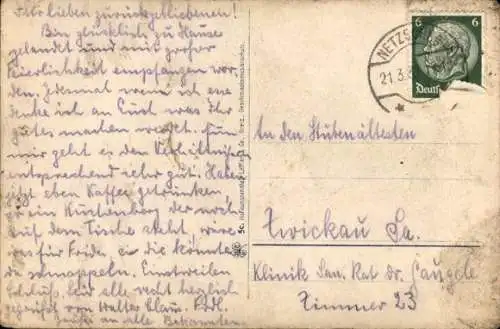 Ihr lieben zurückgebliebenen!
Bin glücklich zu Hause
gelandet und mit großer
Feierlichkeit empfangen wor-
den. Jedesmal wenn ich esse
denke ich an Euch was Ihr
gutes machen werdet. Nun
mir geht es den Verhältnissen
entsprechend sehr gut. Haben
jetzt eben Kaffee getrunken
so ein Kuchenberg der noch
auf dem Tische steht, wäre
was für Frida, ei die könnte
da schnappeln. Einstweilen
Schluß. Seid alle recht herzlich
gegrüßt von Walter Claus.
Grüße an alle Bekannten
NETZSCH
21.3.
6 6
Deutsch
An den Stubenältesten
Zwickau Sa.
Klinik San. Rat dr.
Zimmer 23